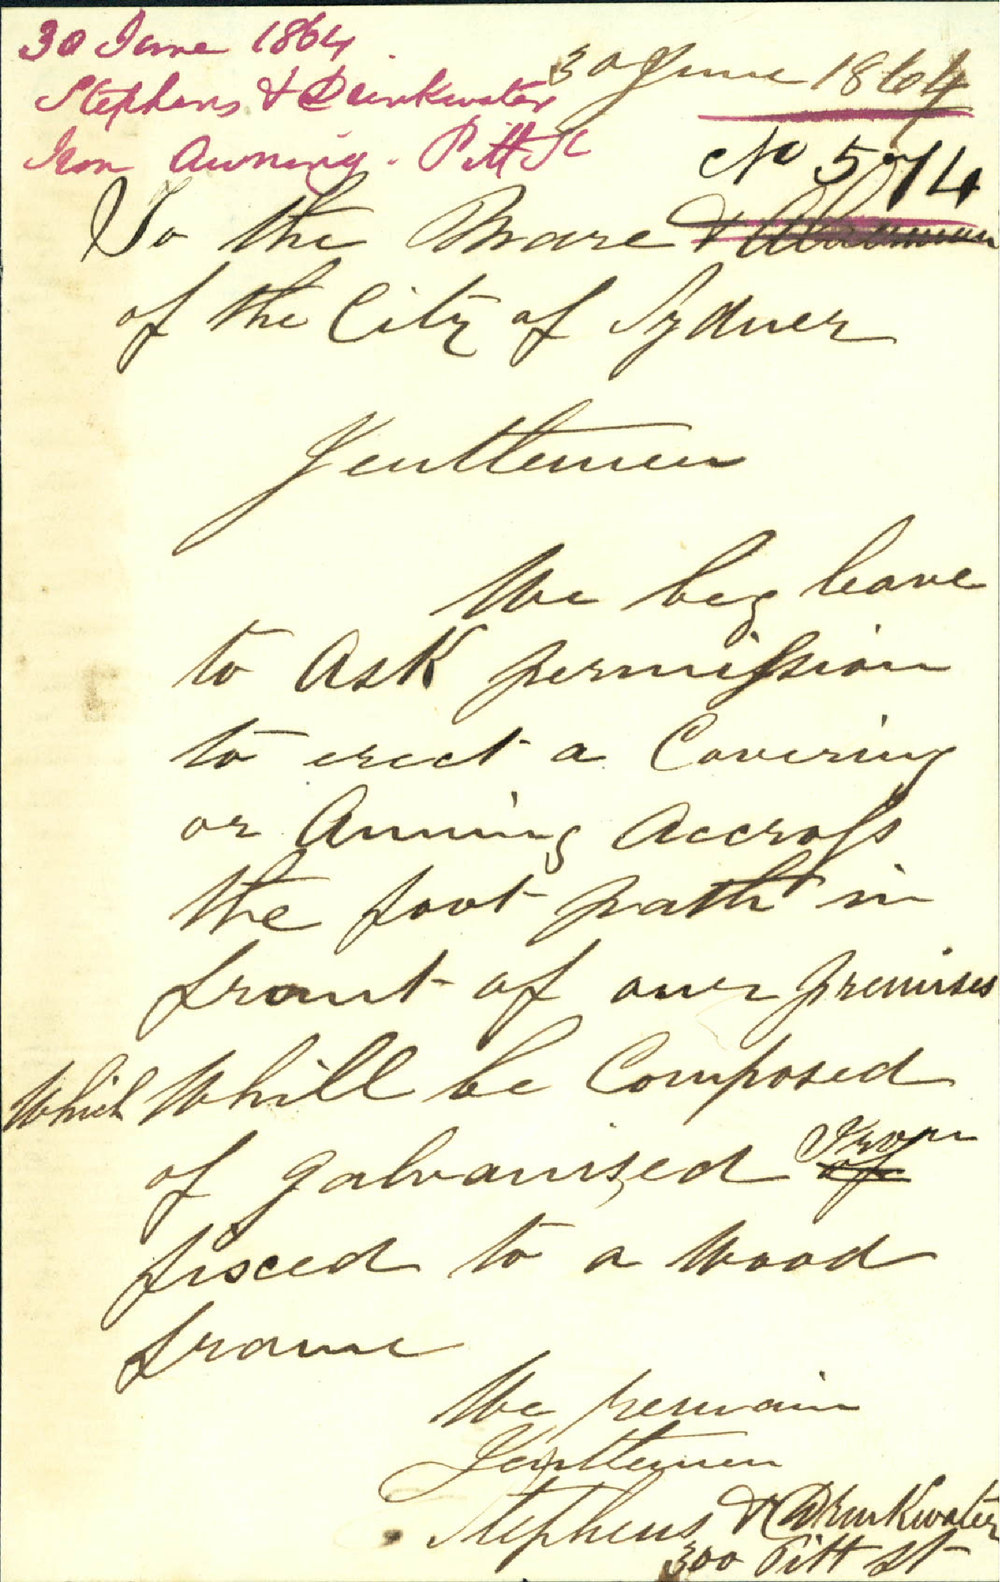 30 June 1864
Stephens & Drinkwater
Iron Awning. Pitt St
30 June 1864
No 574
To the Mare & Alderman
of the City of Sydney
Gentlemen
We beg leave
to ask permission
to erect a Covering
or Auning Accross
the foot path in
front of ower premises
which Whill be Composed
of galvanised Iron of
fixced to a wood
frame
We remain
Gentlemen
Stephens & Drinkwater
300 Pitt St